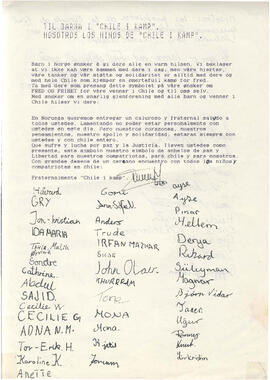 TIL BARNA I "CHILE I KAMP".
NOSOTROS LOS NINOS DE "CHILE I KAMP".
Barn i Norge ønsker å gi dere alle en varm hilsen. Vi beklager
at vi ikke kan være sammen med dere i dag, men våre hjerter,
våre tanker og vår støtte og solidaritet er alltid med dere og
med hele Chile som kjemper en smertefull kamp for fred.
Ta med dere som presang dette symbolet på våre ønsker om
FRED OG FRIHET for vårt folk, for Chile og for dem selv.
Med ønsker om en snarlig gjenforening med alle barn og venner i
Chile hilser vi dere.
En Noruega queremos entregar un caluroso y fraternal saludo a
todos ustedes. Lamentando no poder estar personalmente con
ustedes en este día. Pero nuestros corazones, nuestros
pensamientos, nuestro apoyo y solidaridad, estaran siempre con
ustedes y con todo Chile.
Que sufre y lucha por paz y la Justicia. Lleven ustedes como
presente, este symbolo nuestro símbolo de anhelos de paz y
Libertad para nuestros compatriotas, para chile y para nosotros.
Con grandes deseos de un cercano encuentro con todos los niños y
compatriotas en chile.
Fraternalmente "Chile i kamp"
Håvard Gone Ayse
GRY Ayse
Jon-kristian Anders Pinar
IDA MARIA Trude Meltem
IRFAN MAZHAR Derya
Sondre Rikard
Cathrine John Olav Süleyman
Abdul KHURRAM Magnar
SAJID Tone Bjørn Vidar
Cecilie W
CECILIE G MONA Ugur
ADNA N.M. Mona
Tor-Erik. H Kjetil Knut
Karoline K
Anette